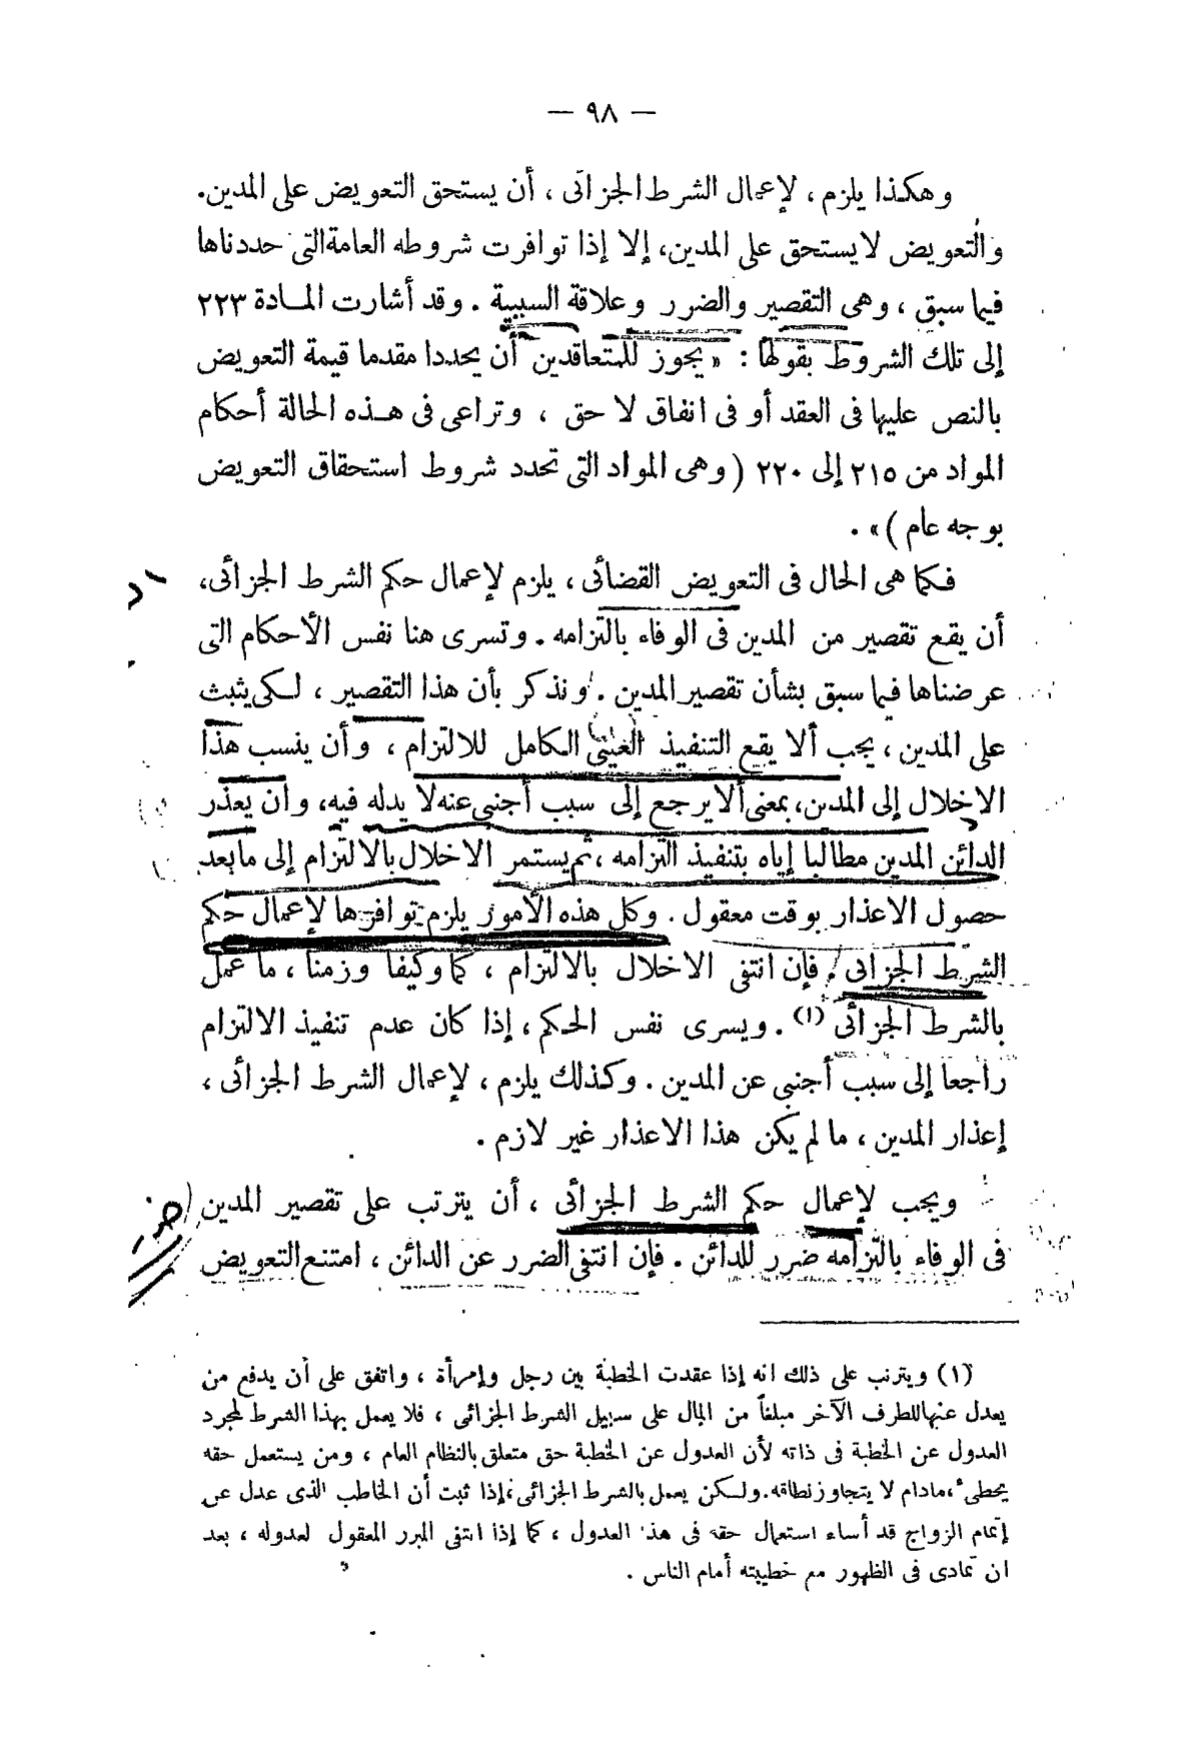 — ٩٨ —
وهكذا يلزم ، لإعمال الشرط الجزائى ، أن يستحق التعويض على المدين.
والتعويض لا يستحق على المدين، إلا إذا توافرت شروطه العامة التى حددناها
فيما سبق ، وهى التقصير والضرر وعلاقة السببية . وقد أشارت المادة ٢٢٣
إلى تلك الشروط بقولها : « يجوز للمتعاقدين أن يحددا مقدما قيمة التعويض
بالنص عليها فى العقد أو فى اتفاق لاحق ، وتراعى فى هذه الحالة أحكام
المواد من ٢١٥ إلى ٢٢٠ ( وهى المواد التى تحدد شروط استحقاق التعويض
بوجه عام )» .
فكما هى الحال فى التعويض القضائى ، يلزم لإعمال حكم الشرط الجزائى،
أن يقع تقصير من المدين فى الوفاء بالتزامه . وتسرى هنا نفس الأحكام التى
عرضناها فيما سبق بشأن تقصير المدين . ونذكر بأن هذا التقصير ، لكى يثبت
على المدين ، يجب ألا يقع التنفيذ العينى الكامل للالتزام ، وأن ينسب هذا
الاخلال إلى المدين، بمعنى ألا يرجع إلى سبب أجنبى عنه لا يد له فيه، وأن يعذر
الدائن المدين مطالبا إياه بتنفيذ التزامه ، ثم يستمر الاخلال بالالتزام إلى ما بعد
حصول الاعذار بوقت معقول . وكل هذه الأمور يلزم توافرها لإعمال حكم
الشرط الجزائى . فإن انتفى الاخلال بالالتزام ، كما وكيفا وزمنا ، ما عمل
بالشرط الجزائى (١) . ويسرى نفس الحكم ، إذا كان عدم تنفيذ الالتزام
راجعا إلى سبب أجنبى عن المدين . وكذلك يلزم ، لإعمال الشرط الجزائى ،
إعذار المدين ، ما لم يكن هذا الاعذار غير لازم .
ويجب لإعمال حكم الشرط الجزائى ، أن يترتب على تقصير المدين
فى الوفاء بالتزامه ضرر للدائن . فإن انتفى الضرر عن الدائن ، امتنع التعويض
(١) ويترتب على ذلك انه إذا عقدت الخطبة بين رجل وإمرأة ، واتفق على أن يدفع من
يعدل عنها للطرف الآخر مبلغاً من المال على سبيل الشرط الجزائى ، فلا يعمل بهذا الشرط لمجرد
العدول عن الخطبة فى ذاته لأن العدول عن الخطبة حق متعلق بالنظام العام ، ومن يستعمل حقه
يخطىء ، مادام لا يتجاوز نطاقه. ولكن يعمل بالشرط الجزائى ، إذا ثبت أن الخاطب الذى عدل عن
إتمام الزواج قد أساء استعمال حقه فى هذا العدول ، كما إذا انتفى المبرر المعقول لعدوله ، بعد
ان تمادى فى الظهور مع خطيبته أمام الناس .